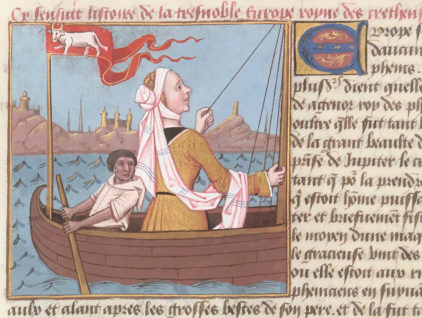 Cy sensuit listoire de la tresnoble Europe royne des crethens
Europe f
daucun
phenis.
plusrs dient quelle
de agenor roy des ph
oultre qlle fut tant b
de la grant beaulte d
pnse de Jupiter le c
tant q po la prendre
q estoit home puisse
ter et briefuement fi
le moyen dune maq
le gracieuse vint des
ou elle estoit aux ri
pheniciens en suiua
auly et alant apres les grosses bestes de son pere. et de la fut t